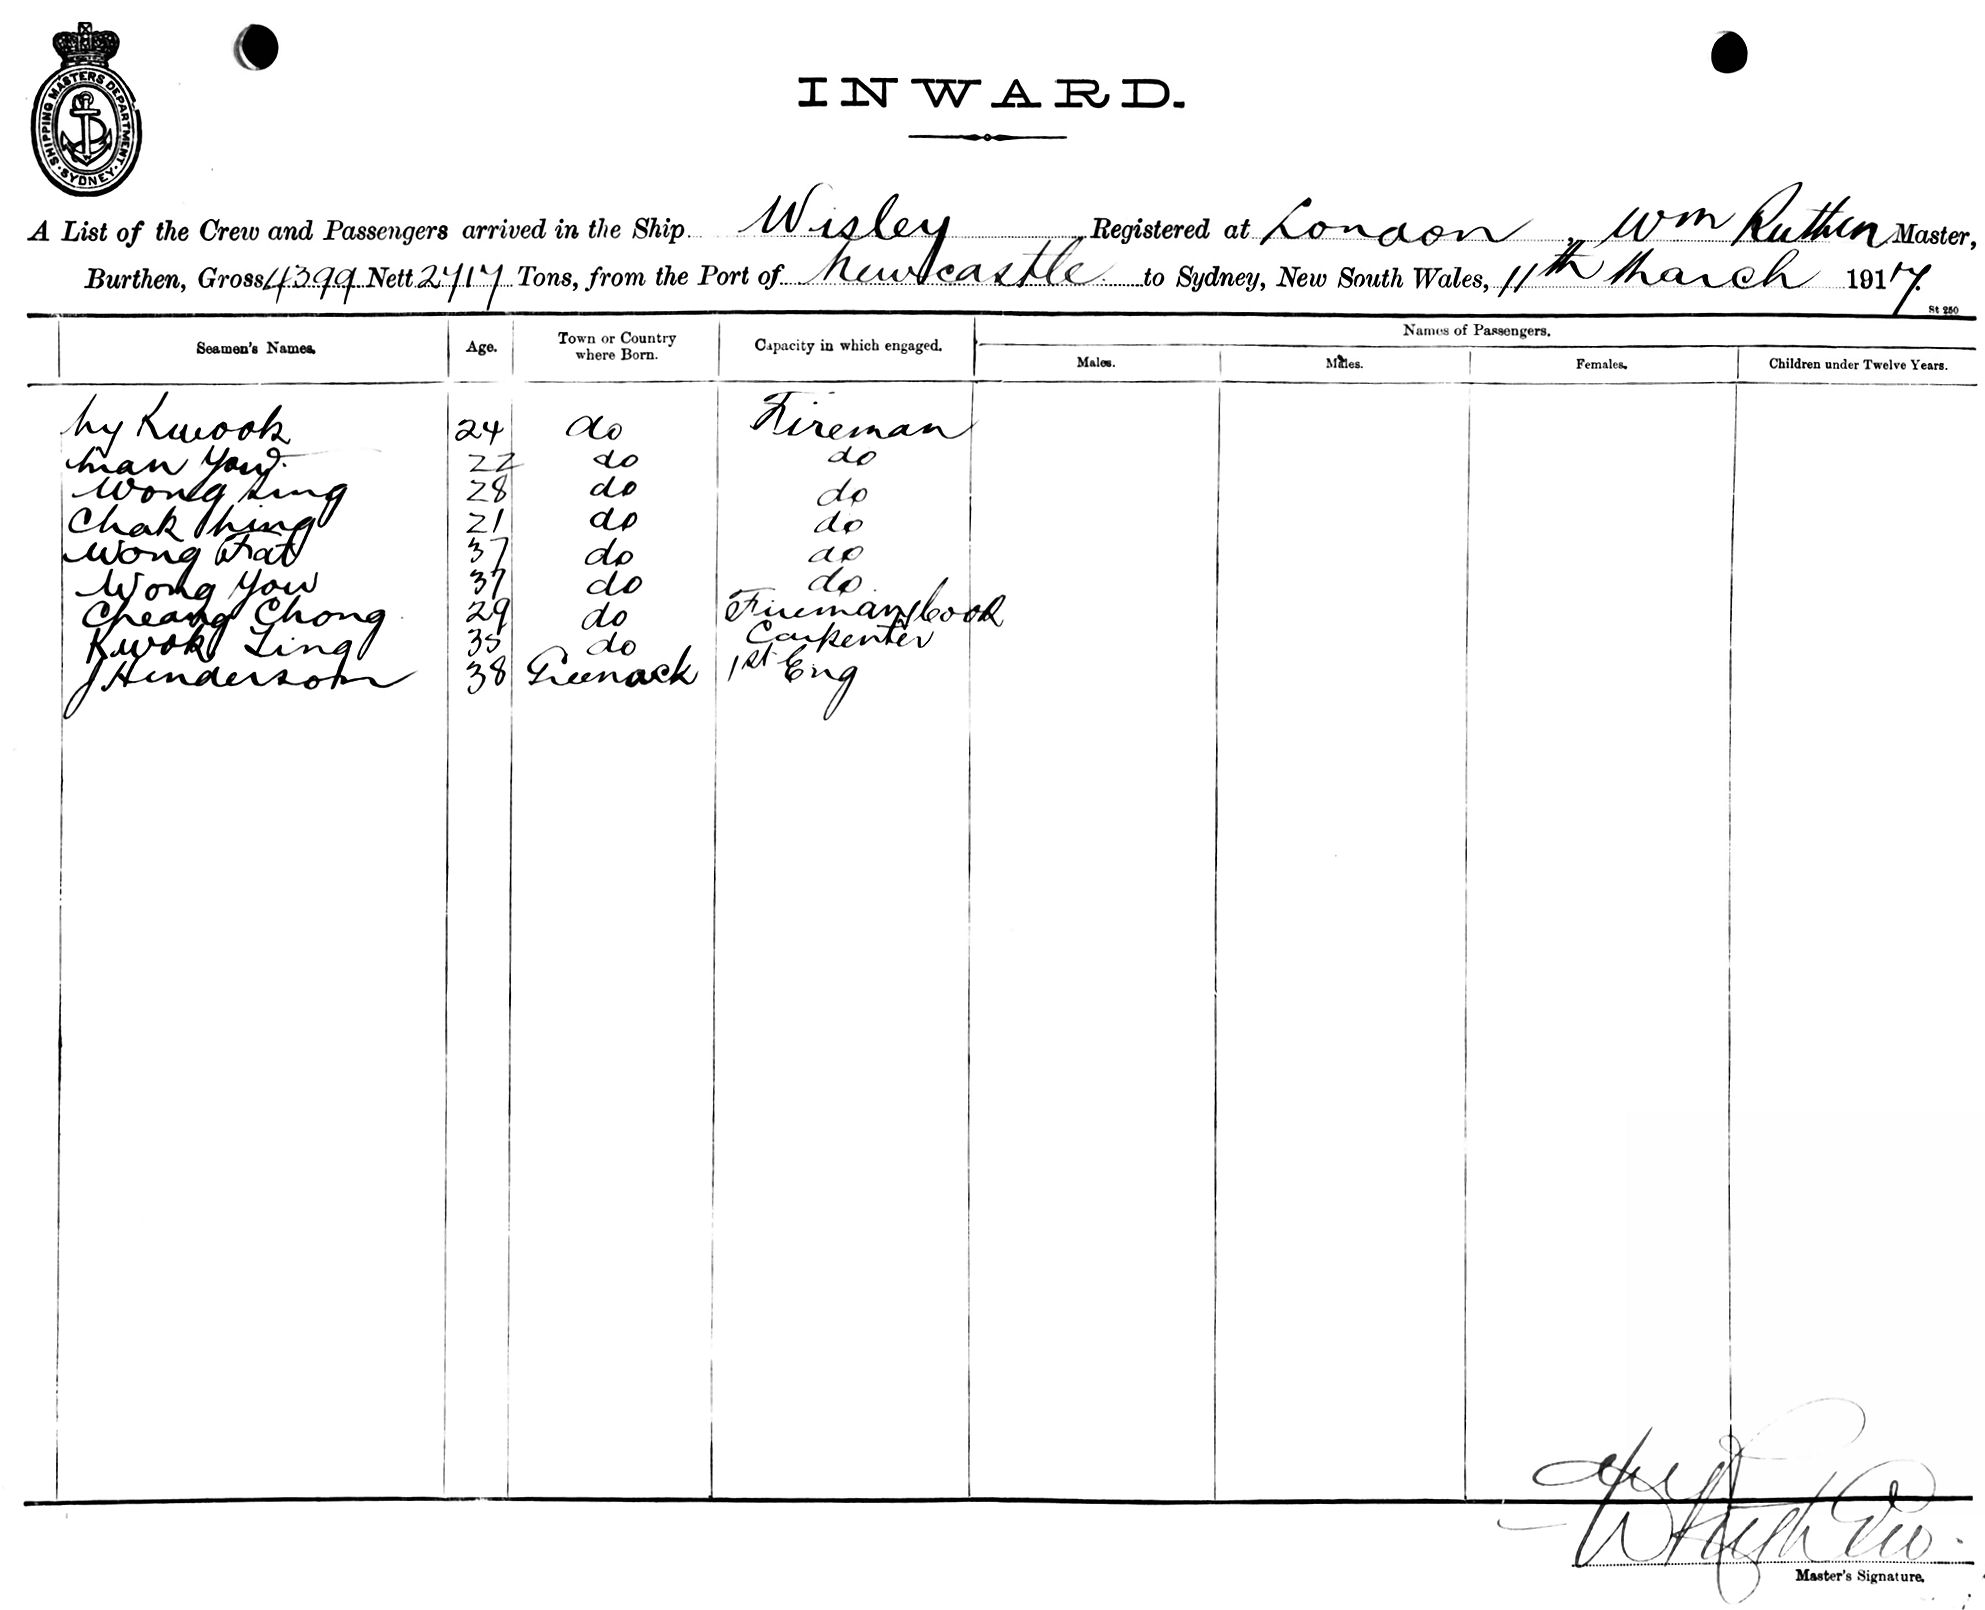 SHIPPING MASTERS DEPARTMENT · SYDNEY ·
INWARD.
A List of the Crew and Passengers arrived in the Ship Wisley Registered at London, Wm Ruthen Master,
Burthen, Gross 4399 Nett 2717 Tons, from the Port of Newcastle to Sydney, New South Wales, 11th March 1917.
St 250
Seamen's Names. Age. Town or Country where Born. Capacity in which engaged. Names of Passengers.
Males. Males. Females. Children under Twelve Years.
Ny Kwook 24 do Fireman
Man You 22 do do
Wong Sing 28 do do
Chak Hing 21 do do
Wong Fat 37 do do
Wong You 37 do do
Cheang Chong 29 do Fireman's Cook
Kwok Ling 35 do Carpenter
J Henderson 38 Greenock 1st Eng
Master's Signature.